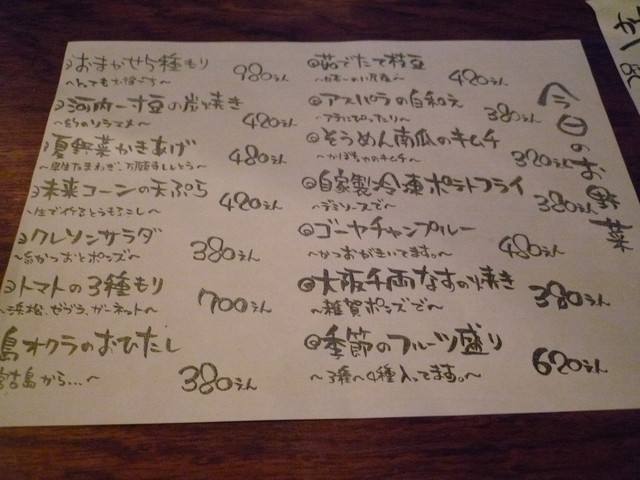 今日のお野菜
おまかせ5種もり 980えん
〜とてもお得です〜
河内一寸豆の炭焼き 420えん
夏野菜かきあげ 480えん
未来コーンの天ぷら 420えん
〜生で作るとうもろこし〜
クレソンサラダ 380えん
〜糸かつおとポンズ〜
トマトの3種もり 700えん
〜浜松、ゼブラ、ガーネット〜
島オクラのおひたし 380えん
宮古島から…〜
茹でたて枝豆 420えん
アスパラの白和え 380えん
そうめん南瓜のキムチ 320えん
〜かぼちゃのキムチ〜
自家製冷凍ポテトフライ 380えん
〜デミソースで〜
ゴーヤチャンプルー 480えん
〜かつおがきいてます。〜
大阪千両なすの焼き 380えん
〜雑賀ポンズで〜
季節のフルーツ盛り 620えん
〜3種〜4種入ってます。〜